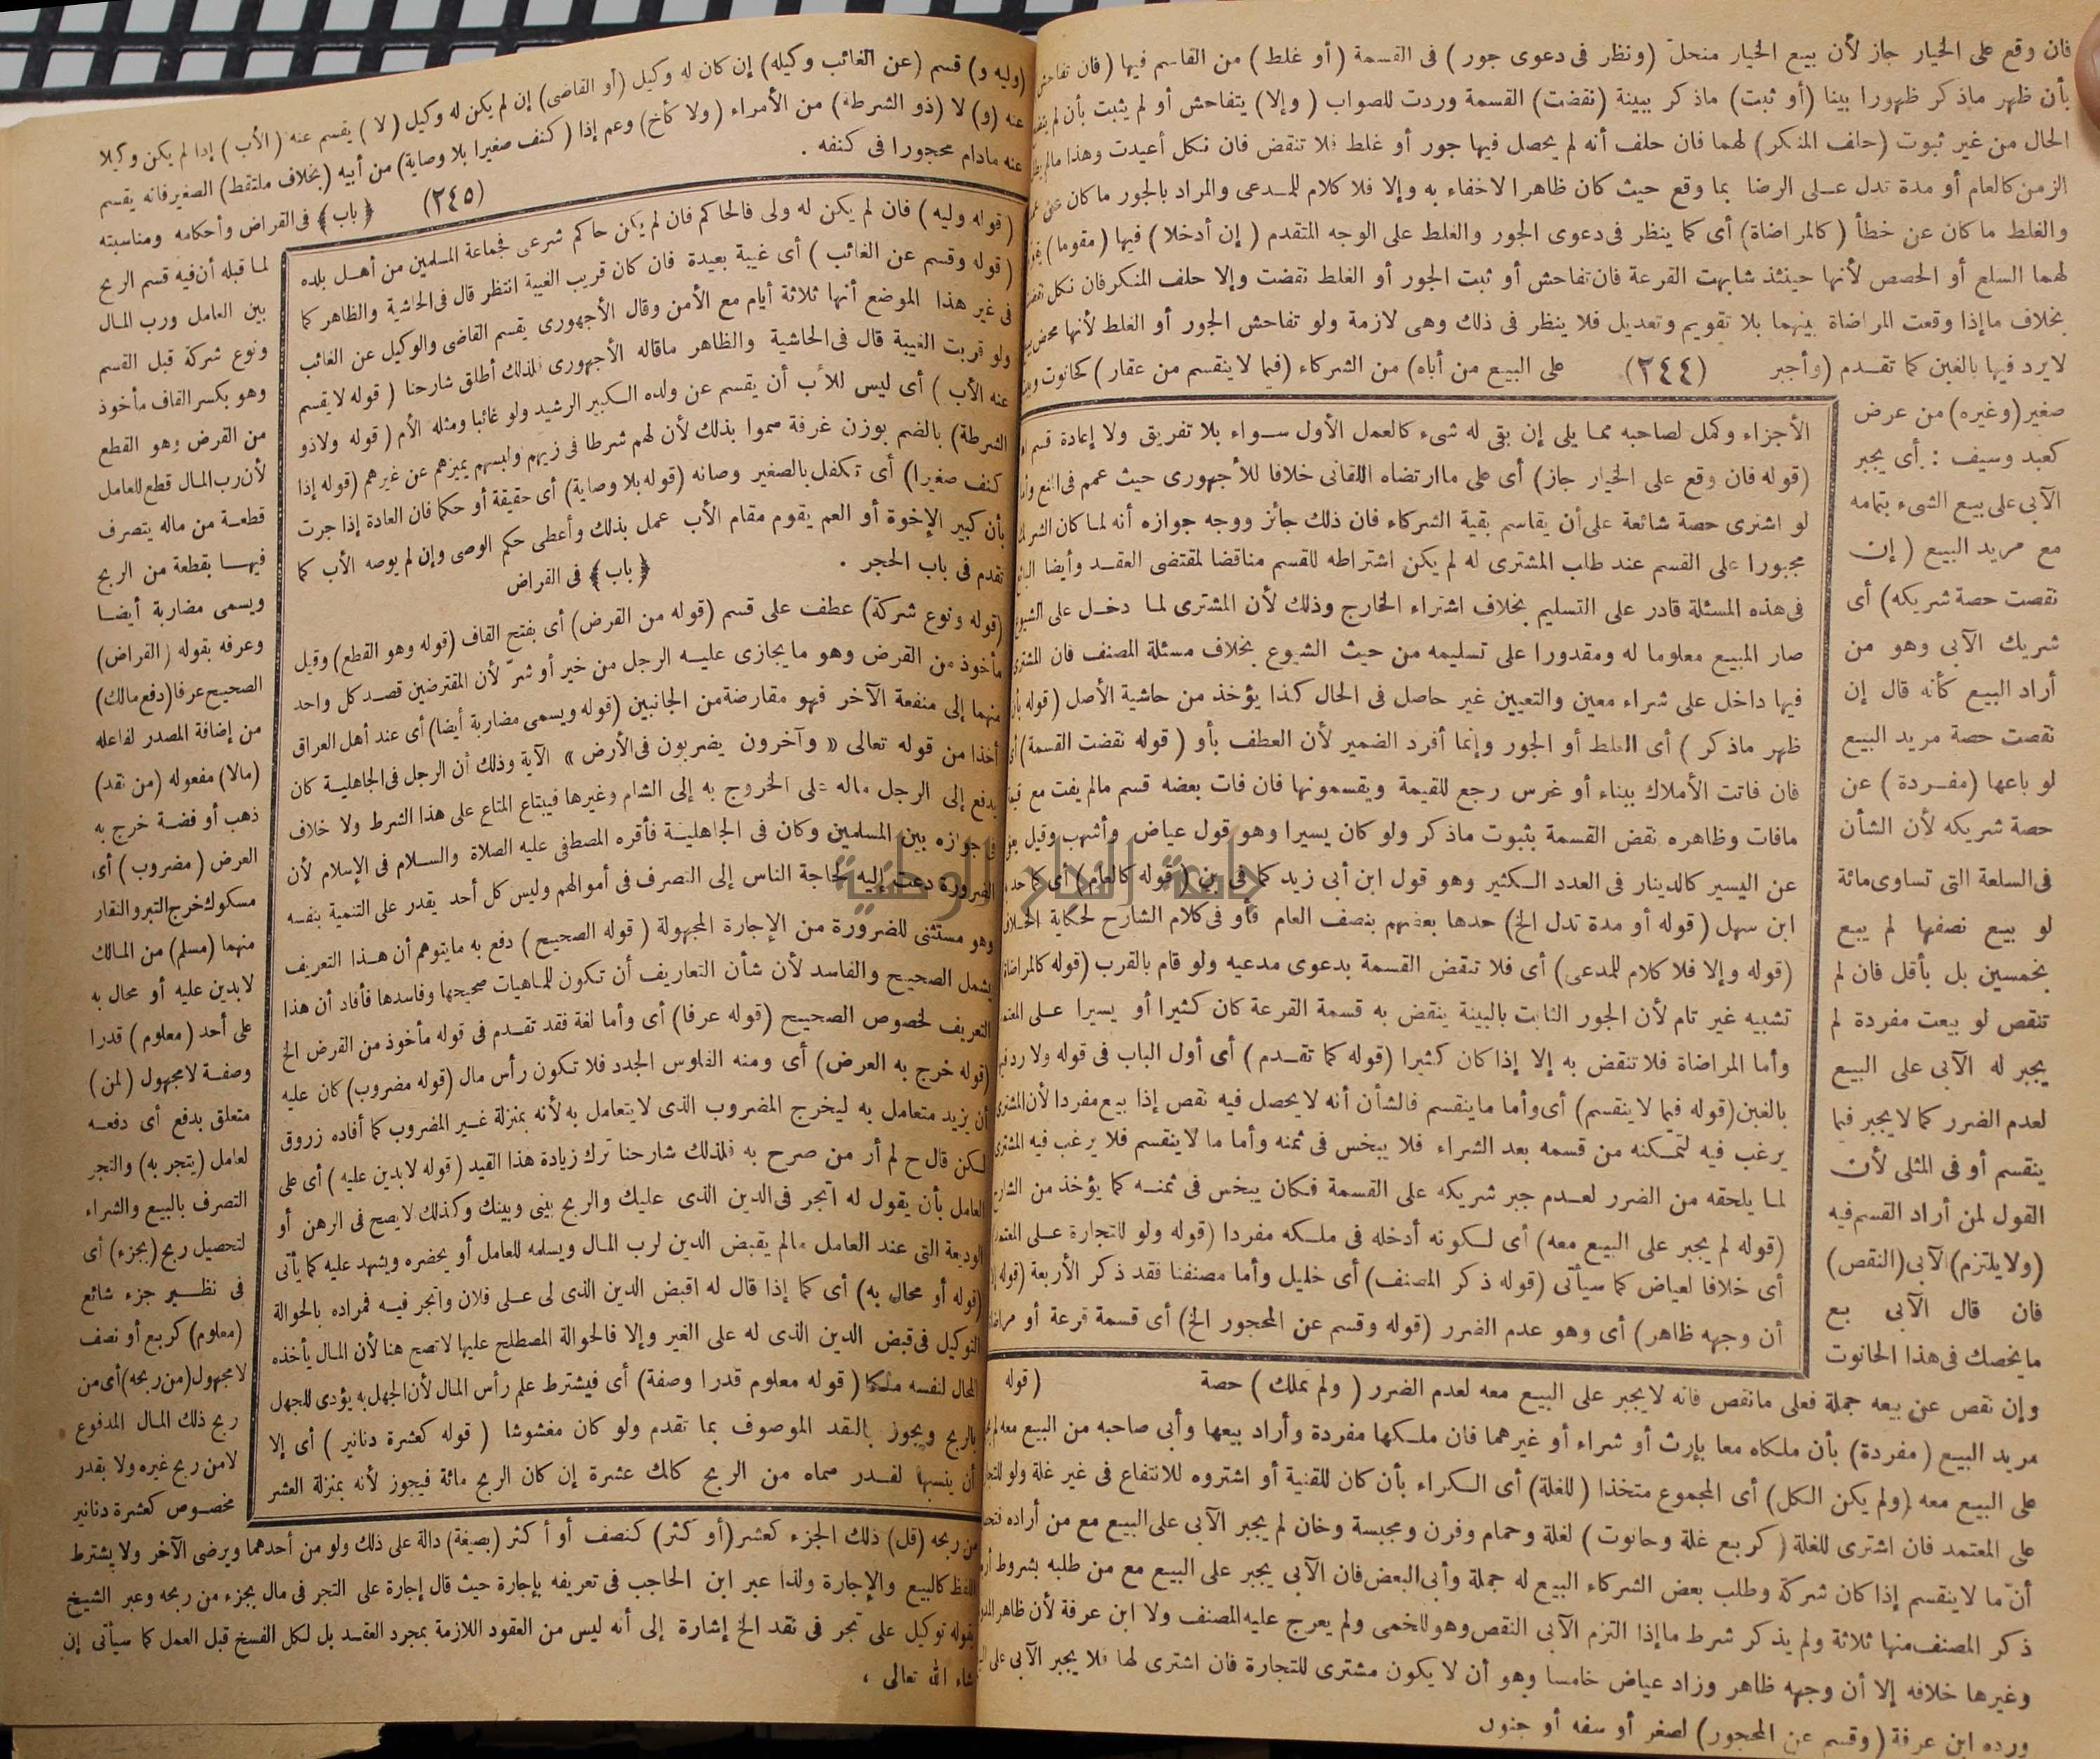 فان وقع على الخيار جاز لأن بيع الخيار منحل (ونظر فى دعوى جور) فى القسمة (أو غلط) من القاسم فيها (فان تفاحش
بأن ظهر ماذكر ظهورا بينا (أو ثبت) ماذكر ببينة (نقضت) القسمة وردت للصواب (وإلا) يتفاحش أو لم يثبت بأن لم
الحال من غير ثبوت (حلف المنكر) لهما فان حلف أنه لم يحصل فيها جور أو غلط فلا تنقض فان نكل أعيدت وهذا مالم
الزمن كالعام أو مدة تدل عـلى الرضا بما وقع حيث كان ظاهرا لاخفاء به وإلا فلا كلام للمـدعى والمراد بالجور ما كان عن
والغلط ما كان عن خطأ (كالمراضاة) أى كما ينظر فى دعوى الجور والغلط على الوجه المتقدم (إن أدخلا) فيها (مقوما)
لهما السلع أو الحصص لأنها حينئذ شابهت القرعة فان تفاحش أو ثبت الجور أو الغلط نقضت وإلا حلف المنكر فان نكل
بخلاف ما إذا وقعت المراضاة بينهما بلا تقويم وتعديل فلا ينظر فى ذلك وهى لازمة ولو تفاحش الجور أو الغلط لأنها محض
لايرد فيها بالغبن كما تقـدم (وأجبر (٢٤٤) على البيع من أباه) من الشركاء (فيما لاينقسم من عقار) كحانوت
صغير (وغيره) من عرض
كعبد وسيف : أى يجبر
الآبى على بيع الشىء بتمامه
مع مريد البيع (إن
نقصت حصة شريكه) أى
شريك الآبى وهو من
أراد البيع كأنه قال إن
نقصت حصة مريد البيع
لو باعها (مفـردة) عن
حصة شريكه لأن الشأن
فى السلعة التى تساوى مائة
لو بيع نصفها لم يبع
بخمسين بل بأقل فان لم
تنقص لو بيعت مفردة لم
يجبر له الآبى على البيع
لعدم الضرر كما لايجبر فيما
ينقسم أو فى المثلى لأن
القول لمن أراد القسم فيه
(ولايلتزم) الآبى (النقص)
فان قال الآبى بع
مايخصك فى هذا الحانوت
وإن نقص عن بيعه جملة فعلى مانقص فانه لايجبر على البيع معه لعدم الضرر (ولم تملك) حصة
مريد البيع (مفردة) بأن ملكاه معا بإرث أو شراء أو غيرهما فان ملكها مفردة وأراد بيعها وأبى صاحبه من البيع معه
على البيع معه (ولم يكن الكل) أى المجموع متخذا (للغلة) أى الكراء بأن كان للقنية أو اشتروه للانتفاع فى غير غلة ولو
على المعتمد فان اشترى للغلة (كربع غلة وحانوت) لغلة وحمام وفرن ومجبسة وخان لم يجبر الآبى على البيع مع من أراده
أن ما لاينقسم إذا كان شركة وطلب بعض الشركاء البيع له جملة وأبى البعض فان الآبى يجبر على البيع مع من طلبه بشروط
ذكر المصنف منها ثلاثة ولم يذكر شرط ما إذا التزم الآبى النقص وهو للخمى ولم يعرج عليه المصنف ولا ابن عرفة لأن ظاهر
وغيرها خلافه إلا أن وجهه ظاهر وزاد عياض خامسا وهو أن لا يكون مشترى للتجارة فان اشترى لها فلا يجبر الآبى على
ورده ابن عرفة (وقسم عن المحجور) لصغر أو سفه أو جنون
الأجزاء وكمل لصاحبه مما يلى إن بقى له شىء كالعمل الأول سـواء بلا تفريق ولا إعادة قسم
(قوله فان وقع على الخيار جاز) أى على ما ارتضاه اللقانى خلافا للأجهورى حيث عمم فى المنع
لو اشترى حصة شائعة على أن يقاسم بقية الشركاء فان ذلك جائز ووجه جوازه أنه لما كان
مجبورا على القسم عند طلب المشترى له لم يكن اشتراطه للقسم مناقضا لمقتضى العقـد وأيضا
فى هذه المسئلة قادر على التسليم بخلاف اشتراء الخارج وذلك لأن المشترى لما دخـل على الشيوع
صار المبيع معلوما له ومقدورا على تسليمه من حيث الشيوع بخلاف مسئلة المصنف فان المشترى
فيها داخل على شراء معين والتعيين غير حاصل فى الحال كذا يؤخذ من حاشية الأصل (قوله بأن
ظهر ماذكر) أى الغلط أو الجور وإنما أفرد الضمير لأن العطف بأو (قوله نقضت القسمة)
فان فاتت الأملاك ببناء أو غرس رجع للقيمة ويقسمونها فان فات بعضه قسم مالم يفت مع
مافات وظاهره نقض القسمة بثبوت ماذكر ولو كان يسيرا وهو قول عياض وأشهب وقيل
عن اليسير كالدينار فى العدد الكثير وهو قول ابن أبى زيد كما فى بن (قوله كالعام) أى كما
ابن سهل (قوله أو مدة تدل الخ) حدها بعضهم بنصف العام فأو فى كلام الشارح لحكاية الخلاف
(قوله وإلا فلا كلام للمدعى) أى فلا تنقض القسمة بدعوى مدعيه ولو قام بالقرب (قوله كالمراضاة
تشبيه غير تام لأن الجور الثابت بالبينة ينقض به قسمة القرعة كان كثيرا أو يسيرا عـلى
وأما المراضاة فلا تنقض به إلا إذا كان كثيرا (قوله كما تقـدم) أى أول الباب فى قوله ولا رد
بالغبن (قوله فيما لاينقسم) أى وأما ماينقسم فالشأن أنه لايحصل فيه نقص إذا بيع مفردا لأن المشترى
يرغب فيه لتمكنه من قسمه بعد الشراء فلا يبخس فى ثمنه وأما ما لاينقسم فلا يرغب فيه المشترى
لما يلحقه من الضرر لعـدم جبر شريكه على القسمة فكان يبخس فى ثمنـه كما يؤخذ من الشارح
(قوله لم يجبر على البيع معه) أى لكونه أدخله فى ملكه مفردا (قوله ولو للتجارة عـلى المعتمد
أى خلافا لعياض كما سيأتى (قوله ذكر المصنف) أى خليل وأما مصنفنا فقد ذكر الأربعة (قوله
أن وجهه ظاهر) أى وهو عدم الضرر (قوله وقسم عن المحجور الخ) أى قسمة قرعة أو
(قوله
(وليه و) قسم (عن الغائب وكيله) إن كان له وكيل (أو القاضى) إن لم يكن له وكيل (لا) يقسم عنه (الأب) إذا لم يكن وكيلا
عنه (و) لا (ذو الشرطة) من الأمراء (ولا كأخ) وعم إذا (كنف صغيرا بلا وصاية) من أبيه (بخلاف ملتقط) الصغير فانه يقسم
عنه مادام محجورا فى كنفه . (٢٤٥) ﴿باب﴾ فى القراض وأحكامه ومناسبته
لما قبله أن فيه قسم الربح
بين العامل ورب المال
ونوع شركة قبل القسم
وهو بكسر القاف مأخوذ
من القرض وهو القطع
لأن رب المال قطع للعامل
قطعـة من ماله يتصرف
فيهـا بقطعة من الربح
ويسمى مضاربة أيضا
وعرفه بقوله (القراض)
الصحيح عرفا (دفع مالك)
من إضافة المصدر لفاعله
(مالا) مفعوله (من نقد)
ذهب أو فضـة خرج به
العرض (مضروب) أى
مسكوك خرج التبر والنقار
منهما (مسلم) من المالك
لابدين عليه أو محال به
على أحد (معلوم) قدرا
وصفـة لامجهول (لمن)
متعلق بدفع أى دفعـه
لعامل (يتجر به) والتجر
التصرف بالبيع والشراء
لتحصيل ربح (بجزء) أى
فى نظـير جزء شائع
(معلوم) كربع أو نصف
لامجهول (من ربحه) أى من
ربح ذلك المال المدفوع
لامن ربح غيره ولا بقدر
مخصوص كعشرة دنانير
من ربحه (قل) ذلك الجزء كعشر (أو كثر) كنصف أو أكثر (بصيغة) دالة على ذلك ولو من أحدهما ويرضى الآخر ولا يشترط
اللفظ كالبيع والإجارة ولذا عبر ابن الحاجب فى تعريفه بإجارة حيث قال إجارة على التجر فى مال بجزء من ربحه وعبر الشيخ
بقوله توكيل على تجر فى نقد الخ إشارة إلى أنه ليس من العقود اللازمة بمجرد العقـد بل لكل الفسخ قبل العمل كما سيأتى إن
شاء الله تعالى ،
(قوله وليه) فان لم يكن له ولى فالحاكم فان لم يكن حاكم شرعى فجماعة المسلمين من أهـل بلده
(قوله وقسم عن الغائب) أى غيبة بعيدة فان كان قريب الغيبة انتظر قال فى الحاشية والظاهر كما
فى غير هذا الموضع أنها ثلاثة أيام مع الأمن وقال الأجهورى يقسم القاضى والوكيل عن الغائب
ولو قربت الغيبة قال فى الحاشية والظاهر ماقاله الأجهورى فلذلك أطلق شارحنا (قوله لايقسم
عنه الأب) أى ليس للأب أن يقسم عن ولده الكبير الرشيد ولو غائبا ومثله الأم (قوله ولاذو
الشرطة) بالضم بوزن غرفة سموا بذلك لأن لهم شرطا فى زيهم ولبسهم يميزهم عن غيرهم (قوله إذا
كنف صغيرا) أى تكفل بالصغير وصانه (قوله بلا وصاية) أى حقيقة أو حكما فان العادة إذا جرت
بأن كبير الإخوة أو العم يقوم مقام الأب عمل بذلك وأعطى حكم الوصى وإن لم يوصه الأب كما
تقدم فى باب الحجر . ﴿باب﴾ فى القراض
(قوله ونوع شركة) عطف على قسم (قوله من القرض) أى بفتح القاف (قوله وهو القطع) وقيل
مأخوذ من القرض وهو ما يجازى عليـه الرجل من خير أو شر لأن المقترضين قصـد كل واحد
منهما إلى منفعة الآخر فهو مقارضة من الجانبين (قوله ويسمى مضاربة أيضا) أى عند أهل العراق
أخذا من قوله تعالى «وآخرون يضربون فى الأرض» الآية وذلك أن الرجل فى الجاهلية كان
يدفع إلى الرجل ماله على الخروج به إلى الشام وغيرها فيبتاع المتاع على هذا الشرط ولا خلاف
فى جوازه بين المسلمين وكان فى الجاهلية فأقره المصطفى عليه الصلاة والسلام فى الإسلام لأن
الضرورة دعت إليه لحاجة الناس إلى التصرف فى أموالهم وليس كل أحد يقدر على التنمية بنفسه
وهو مستثنى للضرورة من الإجارة المجهولة (قوله الصحيح) دفع به مايتوهم أن هـذا التعريف
يشمل الصحيح والفاسد لأن شأن التعاريف أن تكون للماهيات صحيحها وفاسدها فأفاد أن هذا
التعريف لخصوص الصحيح (قوله عرفا) أى وأما لغة فقد تقـدم فى قوله مأخوذ من القرض الخ
(قوله خرج به العرض) أى ومنه الفلوس الجدد فلا تكون رأس مال (قوله مضروب) كان عليه
أن يزيد متعامل به ليخرج المضروب الذى لايتعامل به لأنه بمنزلة غـير المضروب كما أفاده زروق
لكن قال ح لم أر من صرح به فلذلك شارحنا ترك زيادة هذا القيد (قوله لابدين عليه) أى على
العامل بأن يقول له اتجر فى الدين الذى عليك والربح بينى وبينك وكذلك لايصح فى الرهن أو
الوديعة التى عند العامل مالم يقبض الدين لرب المال ويسلمه للعامل أو يحضره ويشهد عليه كما يأتى
(قوله أو محال به) أى كما إذا قال له اقبض الدين الذى لى عـلى فلان واتجر فيـه فمراده بالحوالة
التوكيل فى قبض الدين الذى له على الغير وإلا فالحوالة المصطلح عليها لاتصح هنا لأن المال يأخذه
المحال لنفسه ملكا (قوله معلوم قدرا وصفة) أى فيشترط علم رأس المال لأن الجهل به يؤدى للجهل
بالربح ويجوز بالنقد الموصوف بما تقدم ولو كان مغشوشا (قوله كعشرة دنانير) أى إلا
أن ينسبها لقـدر سماه من الربح كالك عشرة إن كان الربح مائة فيجوز لأنه بمنزلة العشر
جامعة النجاح الوطنية